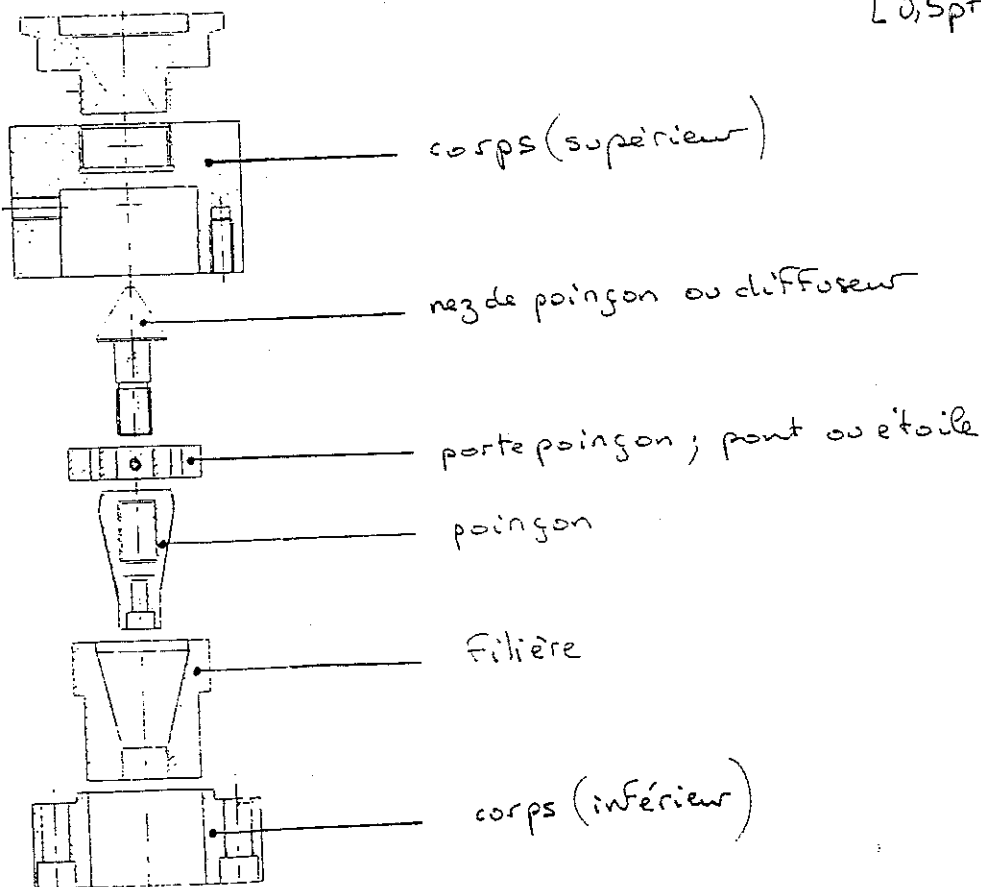 [0,5pt
corps (supérieur)
nez de poinçon ou diffuseur
porte poinçon ; pont ou étoile
poinçon
Filière
corps (inférieur)